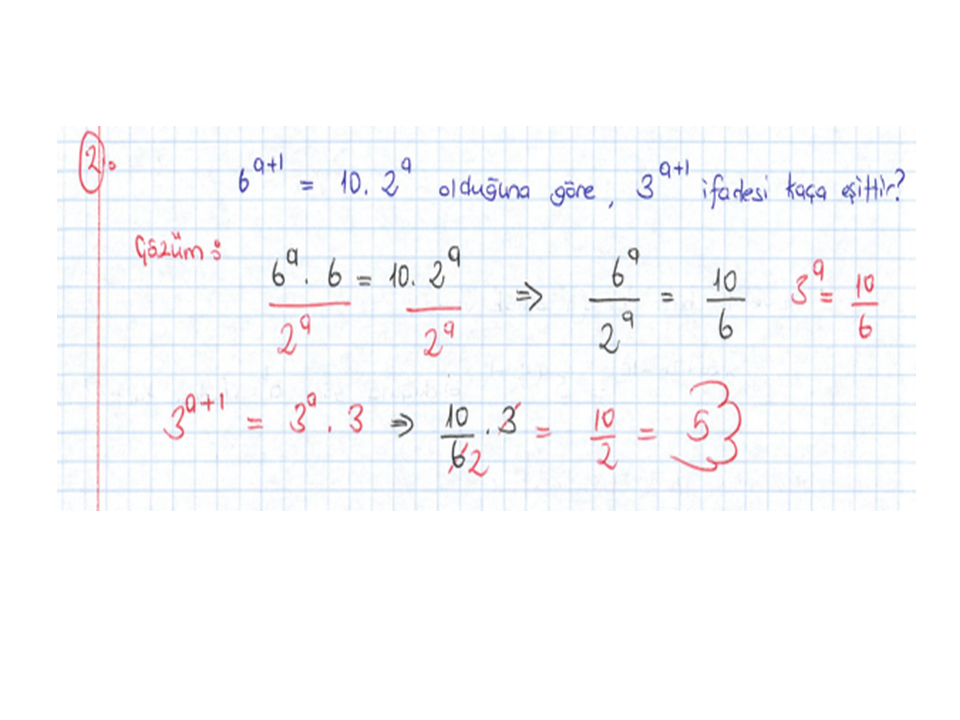 2. 6^(a+1) = 10. 2^a olduğuna göre, 3^(a+1) ifadesi kaça eşittir?
Çözüm:
(6^a . 6)/2^a = (10. 2^a)/2^a ⇒ 6^a/2^a = 10/6 3^a = 10/6
3^(a+1) = 3^a . 3 ⇒ 10/6 2 . 3 = 10/2 = 5